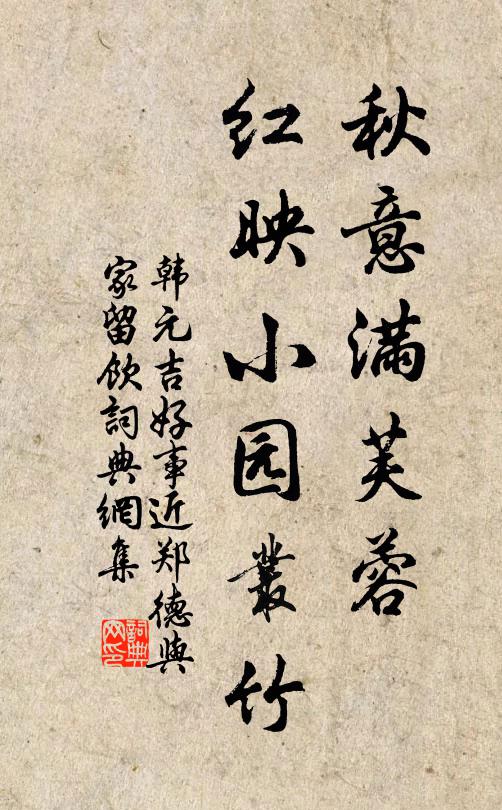 秋意满芙蓉
红映小园叢竹
韩元吉好事近郑德與
家留饮詞典網集
詞典
网印